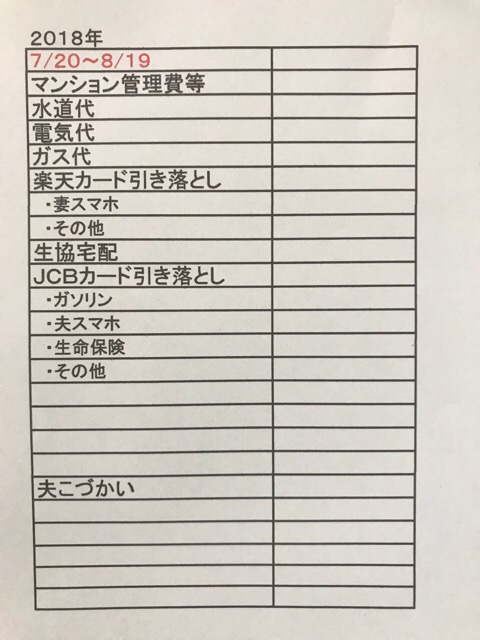 2018年
7/20～8/19
マンション管理費等
水道代
電気代
ガス代
楽天カード引き落とし
・妻スマホ
・その他
生協宅配
JCBカード引き落とし
・ガソリン
・夫スマホ
・生命保険
・その他
夫こづかい